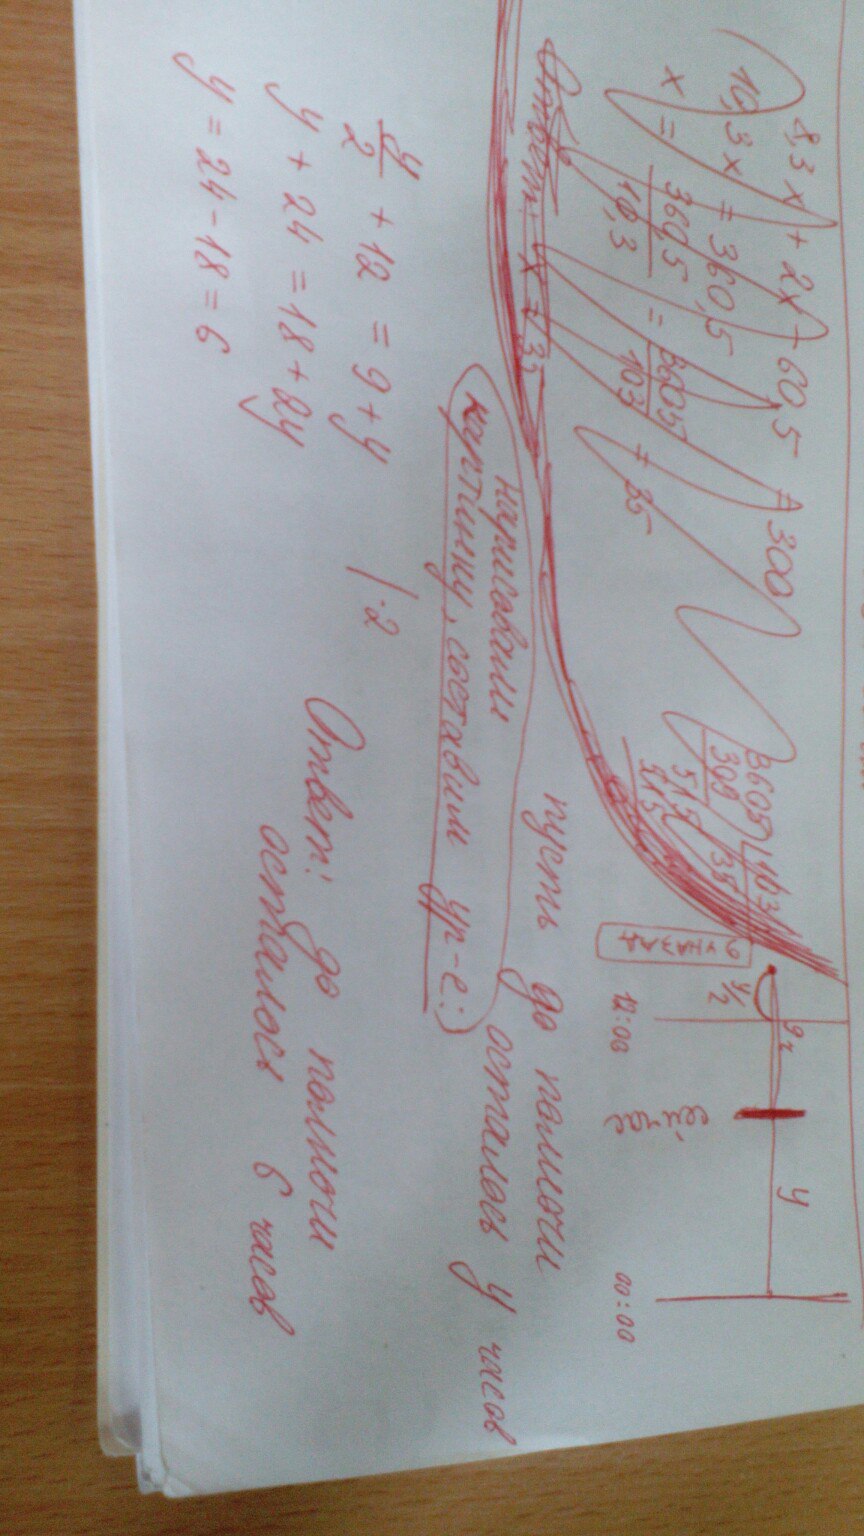 8,3x + 2x + 60,5 = 300
10,3x = 360,5
x = 360,5 / 10,3 = 3605 / 103 = 35
Ответ: x = 35
3605 | 103
309 | 35
515
515
9 ч назад
y/2
9ч
y
12:00
сейчас
00:00
пусть до полночи
осталось y часов
нарисовали
картинку, составим ур-е:
y/2 + 12 = 9 + y | ·2
y + 24 = 18 + 2y
y = 24 - 18 = 6
Ответ: до полночи
осталось 6 часов